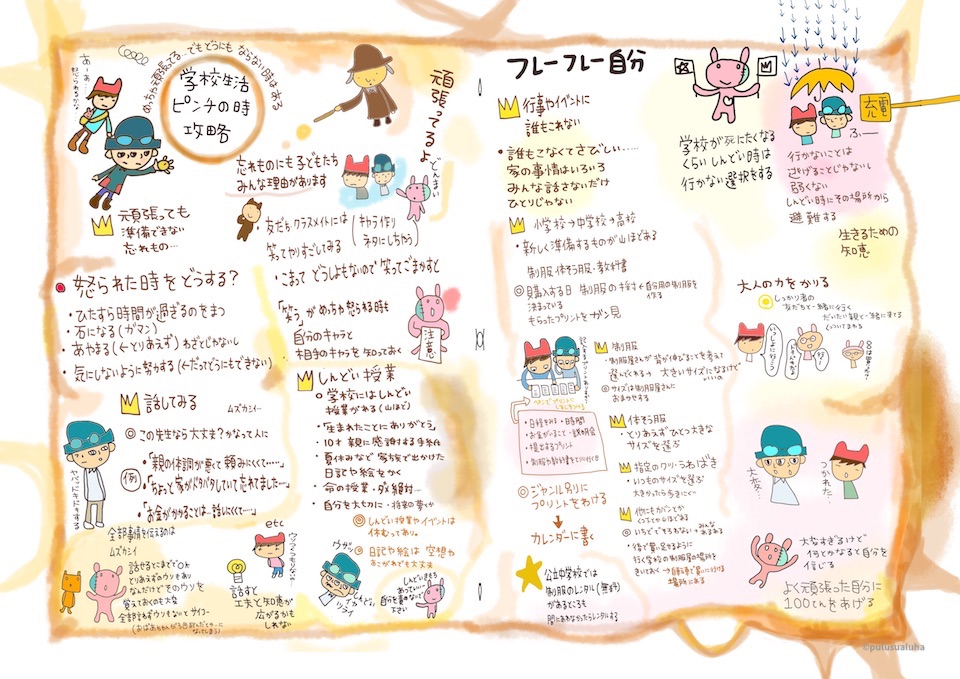 あーあ
怒られるかな
めっちゃ頑張ってる…でもどうにもならない時はある
学校生活
ピンチの時
攻略
頑張っても
準備できない
忘れもの…
忘れものにも子どもたち
みんな理由があります
頑張ってるよ
どんまい
友だち・クラスメイトには
笑ってやりすごしてみる
キャラ作り
ネタにしちゃう
・こまって どうしようもないので 笑ってごまかすと
「笑う」が めっちゃ怒られる時も
自分のキャラと
相手のキャラを 知っておく
注意
怒られた時をどうする?
・ひたすら時間が過ぎるのをまつ
・石になる(ガマン)
・あやまる(←とりあえず)わざとじゃないし
・気にしないように努力する(←だってどうにもできない)
話してみる
ムズカシイー
◎この先生なら大丈夫?かなって人に
例
・「親の体調が悪くて 頼みにくくて……」
・「ちょっと家がドタバタしていて忘れました…」
・「お金がかかることは…話しにくくて…」
ヤバッドキドキする
全部事情を伝えるのは
ムズカシイ
話せるでこまでOK
とりあえずウソもあり
なんだけどそのウソを
覚えておくのも大変
全部言わずウソもないとサイコー
etc
話すと
工夫と知恵が
広がるかも
しれない
しんどい授業
◎学校にはしんどい
授業がある(山ほど)
・「生まれたことにありがとう」
・10才 親に感謝する手紙
・夏休みなど 家族で出かけた
日記や絵をかく
・命の授業・ダメ絶対…
・自分を大切に・将来の夢とか
◎しんどい授業やイベントは
休むってあり。
◎日記や絵は 空想や
あこがれでも大丈夫
ウザッ
しんどいきもち
あっていい…
自分を責めないで
下さい
フレーフレー自分
行事やイベントに
誰もこれない
・誰もこなくてさびしい……
家の事情はいろいろ
みんな話さないだけ
ひとりじゃない
学校が死にたくなる
くらい しんどい時は
行かない選択をする
充電
ふー
行かないことは
逃げることじゃないし
弱くない
しんどい時にその場所から
避難する
生きるための
知恵
小学校→中学校→高校
・新しく準備するものが山ほどある
制服・体そう服・教科書
◎購入する日 制服の採寸←自分用の制服を
作る
決まっている
もらったプリントをガン見
・日程をみる・時間
・お金がいること・説明会
・提出するプリント
・制服や教科書をとりに行く日
◎ジャンル別に
プリントをわける
カレンダーに書く
公立中学校では
制服のレンタル(無料)
があるところも
間にあわなかったらレンタルする
制服
・制服屋さんが背がのびることを考えて
選んでくれる→大きいサイズになるけど
いいの
◎サイズは制服屋さんに
おまかせする
体そう服
・とりあえずひとつ大きな
サイズを選ぶ
指定のクツ・うわばき
・いつものサイズを選ぶ
大きかったら歩きにくい
他にもカバンとか
くつ下とか山ほどある
◎いちどでそろわない→みんな
あるある
・後で買い足せるように
行く学校の制服屋の場所を
きいておく→自転車で買いに行ける
場所にある
大人の力をかりる
しっかり者の
友だちと一緒に行く
だいたい親と一緒に来てる
くっついてまわる
いっしょに行こう
大変…
つかれた…
大変すぎるけど
何とかなると自分を
信じる
よく頑張った自分に
100てんをあげる
©pulusualuha